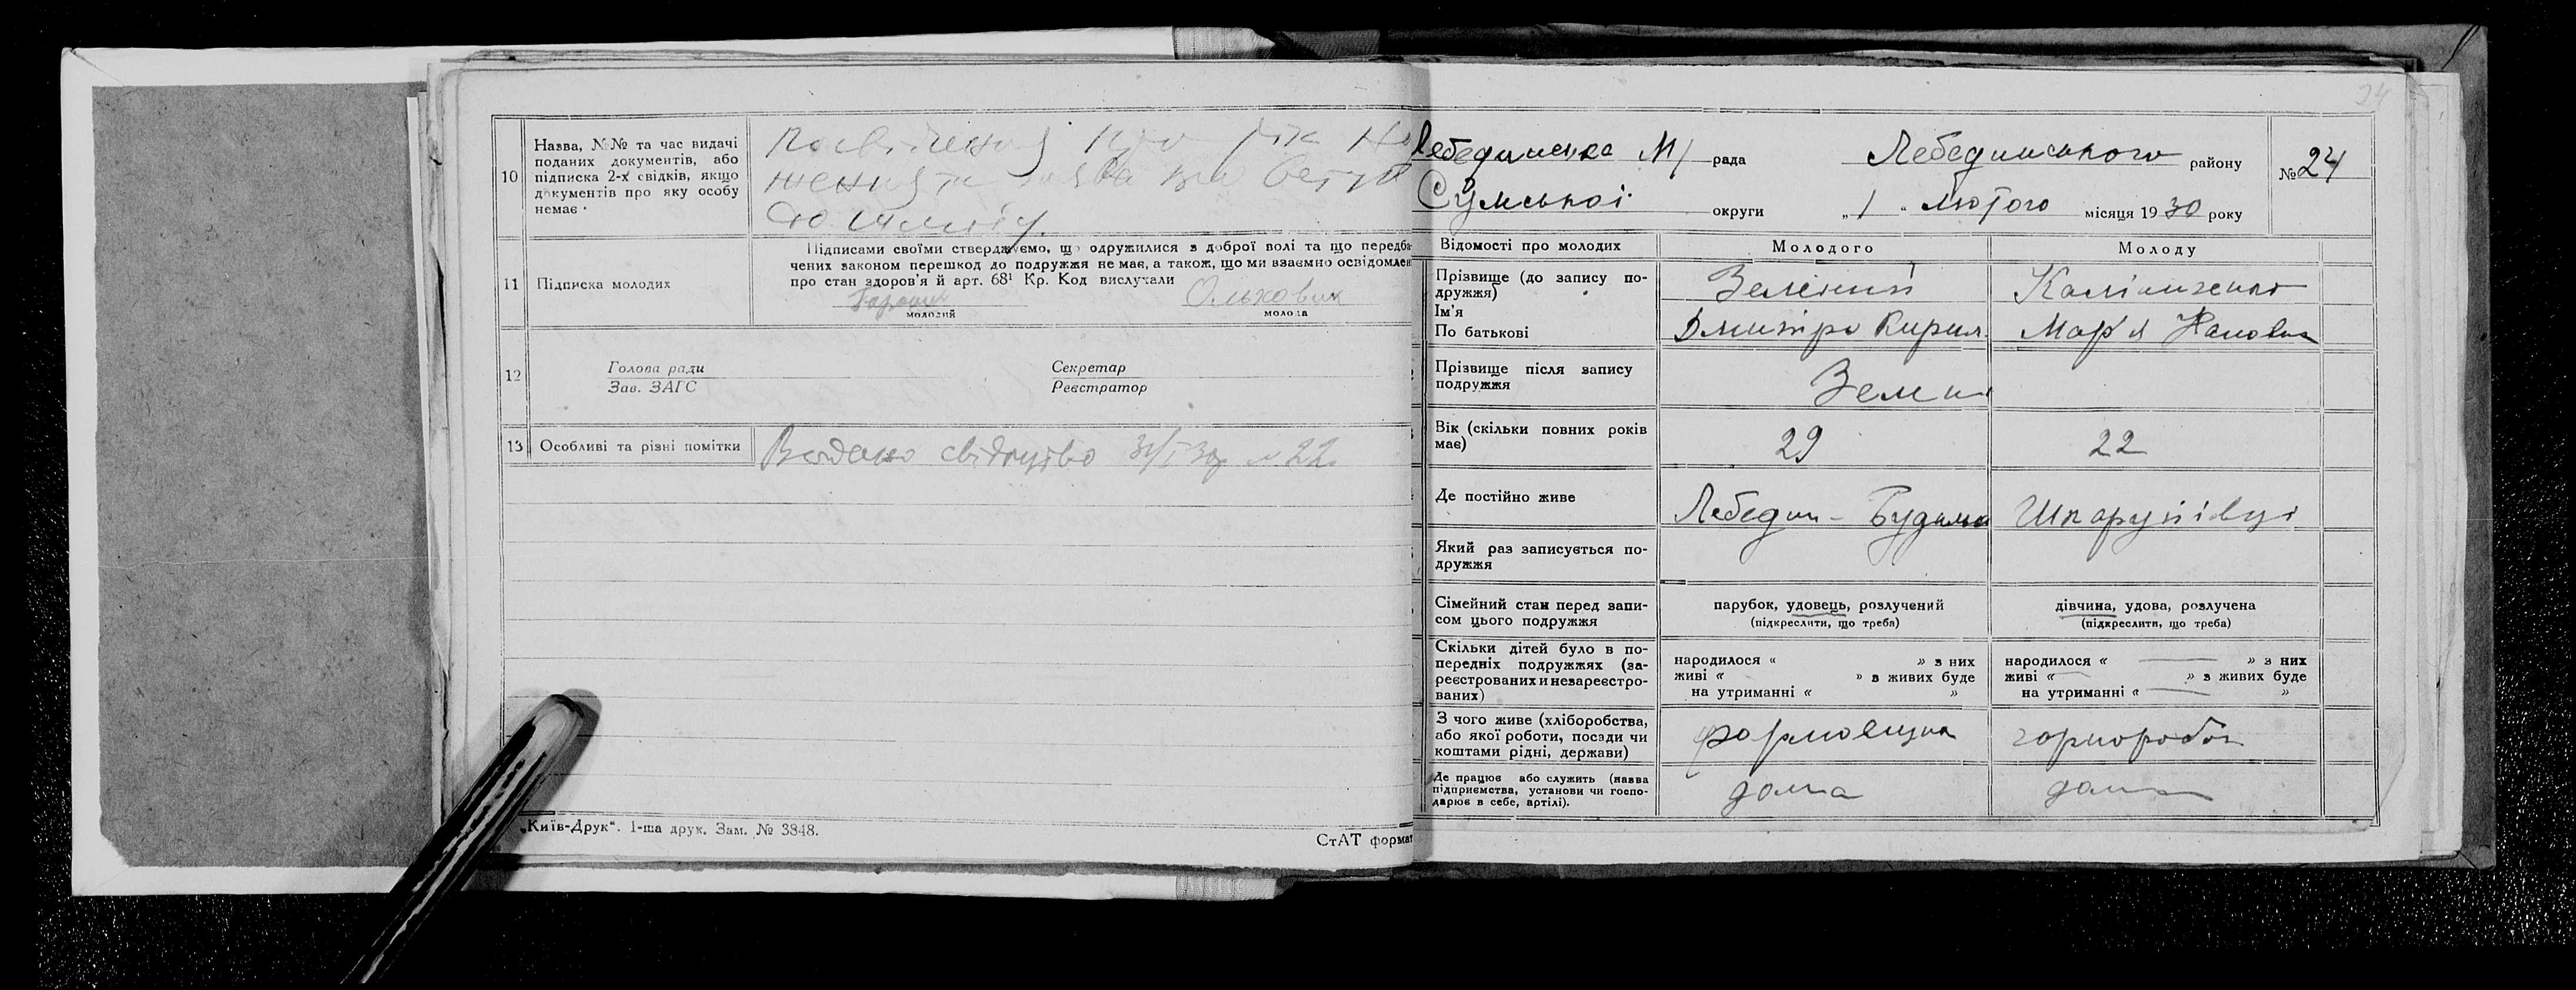 10
Назва, №№ та час видачі
поданих документів, або
підписка 2-х свідків, якщо
документів про яку особу
немає
до шлюбу.
11
Підписка молодих
Підписами своїми стверджуємо, що одружилися з доброї волі та що передба-
чених законом перешкод до подружжя немає, а також, що ми взаємно освідомлен
про стан здоров'я й арт. 68¹ Кр. Код вислухали
Ольховик
молодий
молода
12
Голова ради
Зав. ЗАГС
Секретар
Реєстратор
13
Особливі та різні помітки
Видано свідоцтво 31/I 30р № 22
„Київ-Друк“. 1-ша друк. Зам. № 3848.
СтАТ формат
24
Лебединська М/ рада Лебединського району
№ 24
Сумської округи „1“ лютого місяця 1930 року
Відомості про молодих
Молодого
Молоду
Прізвище (до запису по-
дружжя)
Зелений
Ім'я
По батькові
Дмитро Кирил.
Мар'я
Прізвище після запису
подружжя
Вік (скільки повних років
має)
29
22
Де постійно живе
Лебедин -
Який раз записується по-
дружжя
Сімейний стан перед запи-
сом цього подружжя
парубок, удовець, розлучений
(підкреслити, що треба)
дівчина, удова, розлучена
(підкреслити, що треба)
Скільки дітей було в по-
передніх подружжях (за-
реєстрованих и незареєстро-
ваних)
народилося « » з них
живі « » з живих буде
на утриманні « »
народилося « — » з них
живі « — » з живих буде
на утриманні « — »
З чого живе (хліборобства,
або якої роботи, посади чи
коштами рідні, держави)
формовщик
чорнороб
Де працює або служить (назва
підприємства, установи чи госпо-
дарює в себе, артілі).
дома
дома